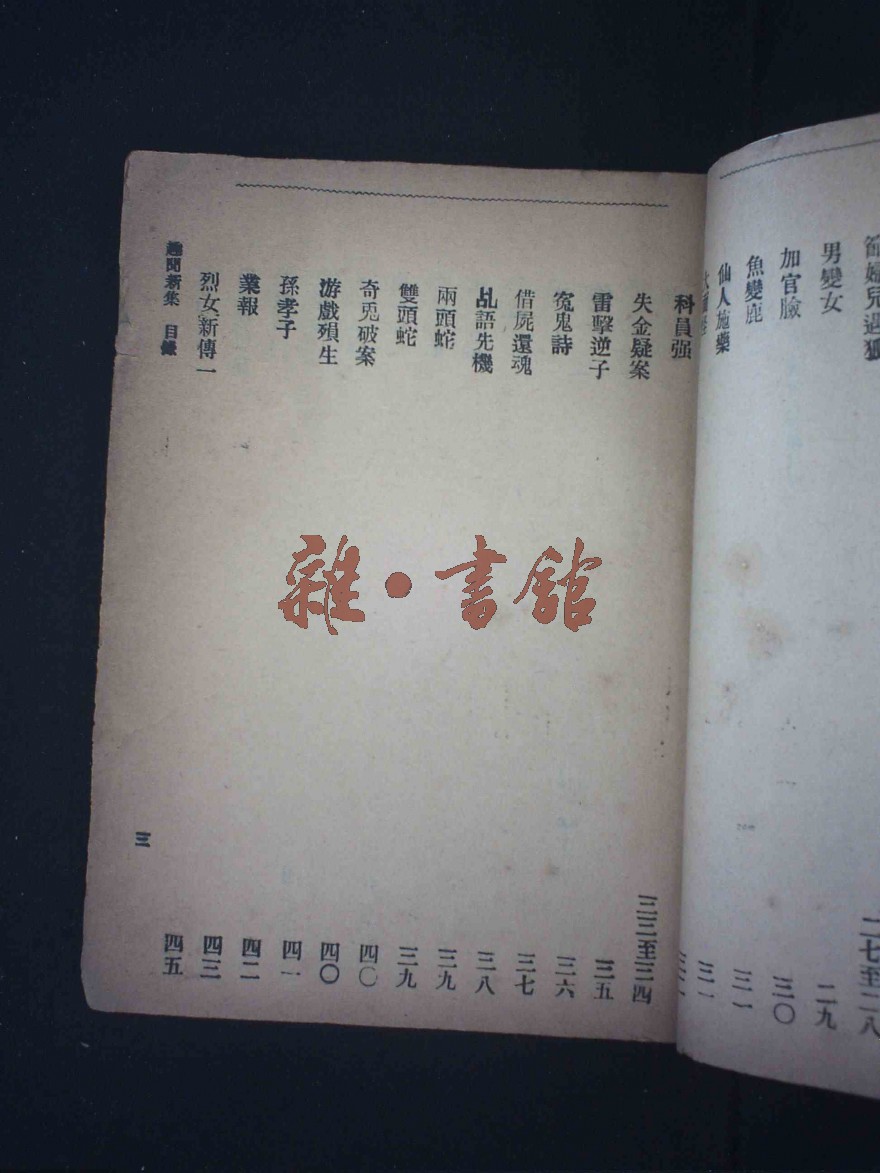 節婦兒遇狐 二七至二八
男變女 二九
加官臉 三〇
魚變鹿 三一
仙人施藥 三一
科員强 三三至三四
失金疑案 三五
雷擊逆子 三六
冤鬼詩 三七
借屍還魂 三八
乩語先機 三九
兩頭蛇 三九
雙頭蛇 四〇
奇兎破案 四〇
游戲殞生 四一
孫孝子 四二
業報 四三
烈女新傳一 四五
趣聞新集 目錄 三
雜·書館